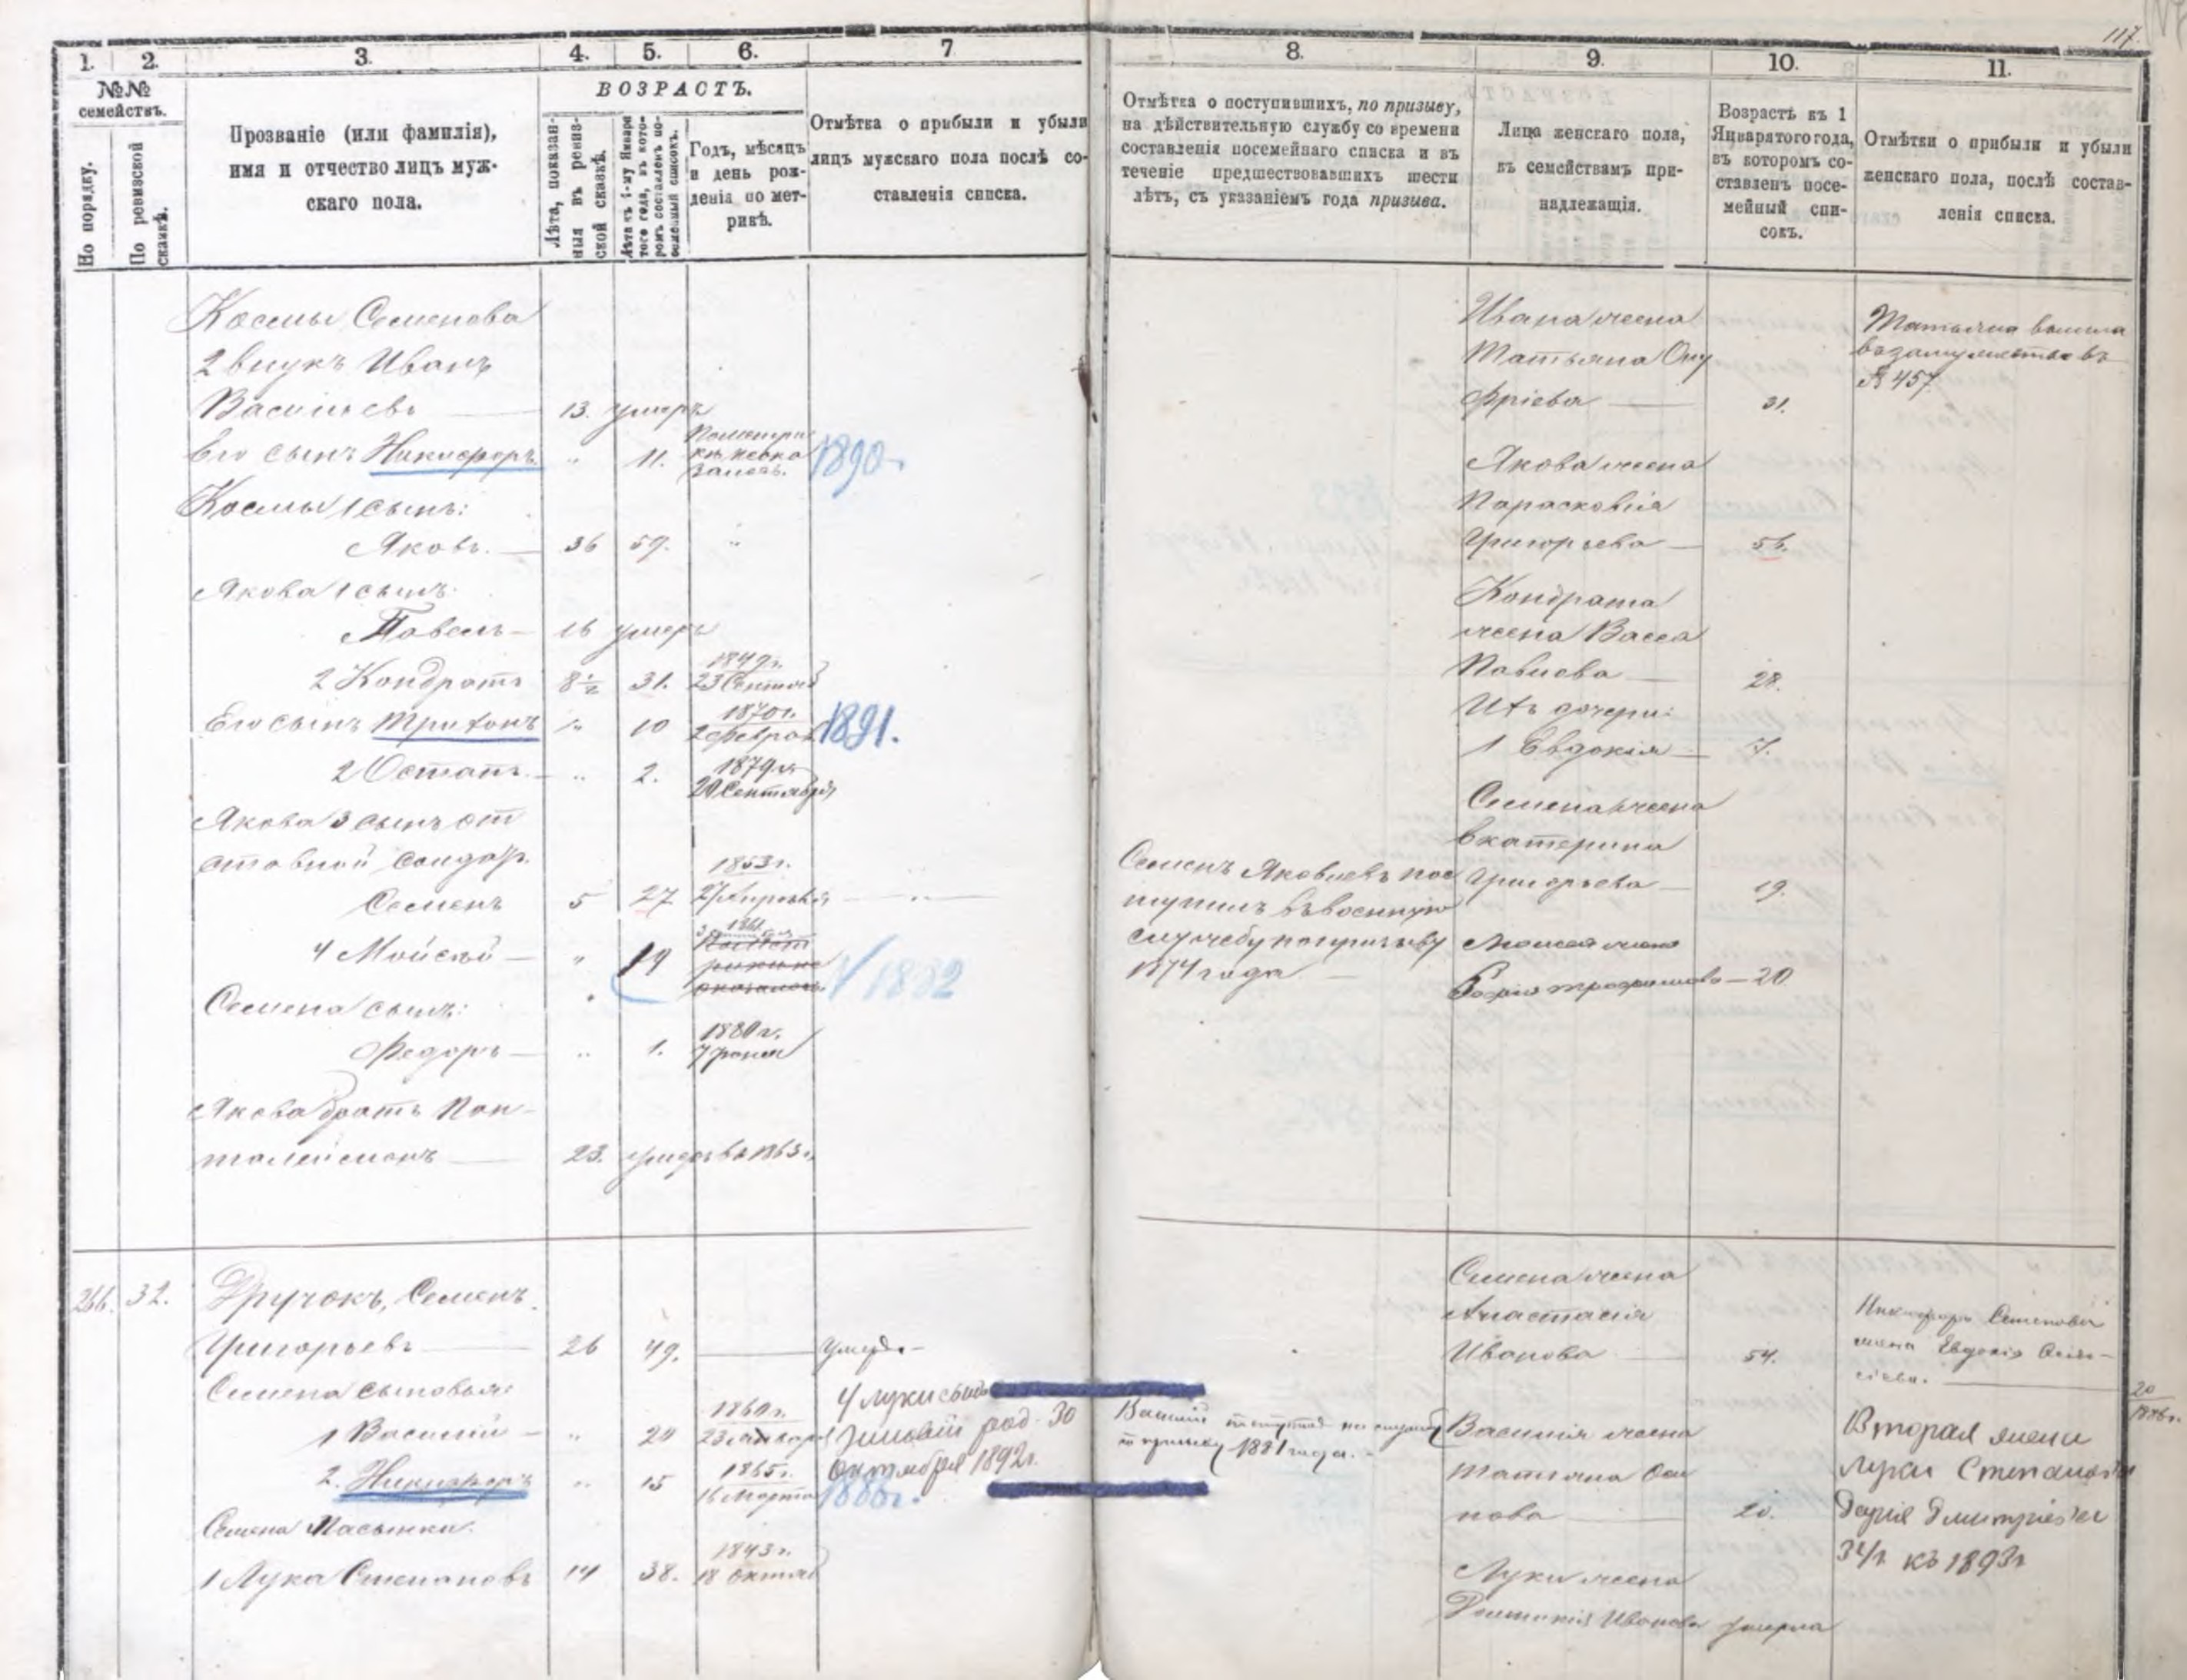 117.
1. 2. 3. 4. 5. 6. 7
№№ семействъ.
По порядку.
По ревизской сказкѣ.
Прозваніе (или фамилія),
имя и отчество лицъ муж-
скаго пола.
ВОЗРАСТЪ.
Лѣта, показан-
ныя въ ревиз-
ской сказкѣ.
Лѣта къ 1-му Января
того года, въ кото-
ромъ составленъ по-
семейный списокъ.
Годъ, мѣсяцъ
и день рож-
денія по мет-
рикѣ.
Отмѣтка о прибыли и убыли
лицъ мужскаго пола послѣ со-
ставленія списка.
Космы Семенова
2 внукъ Иванъ
Васильевъ 13. умеръ
Его сынъ Никифоръ " 11. 1890
Космы 1 сынъ:
Яковъ. 36 59. "
Якова 1 сынъ:
Павелъ 16 умеръ
2 Кондратъ 8½ 31. 1849г. 23 Сентяб
Его сынъ Трифонъ " 10 1870г. 2 Феврал 1891.
2 Остапъ " 2. 1879г. 20 Сентября
Якова 3 сынъ от
ставной солдат.
Семенъ 5 27 1853г. 27 Апрѣля "
4 Мойсей " 19 1882
Семена сынъ:
Федоръ " 1. 1880г. 7
Якова братъ Пан-
талеймонъ 23. умеръ въ 1863г.
266. 32. Дручокъ, Семенъ
Григорьевъ 26 49. умеръ
Семена сыновья:
1 Василій " 20 1860г. 23 Января
2. Никифоръ " 15 1865г. 16 Марта
4 Луки сынъ
род. 30
Октября 1892г.
1886г.
Семена Пасынки:
1 Лука Степановъ 14 38. 1843г. 18 Октяб
8. 9. 10. 11.
Отмѣтка о поступившихъ, по призыву,
на дѣйствительную службу со времени
составленія посемейнаго списка и въ
теченіе предшествовавшихъ шести
лѣтъ, съ указаніемъ года призыва.
Лица женскаго пола,
къ семействамъ при-
надлежащія.
Возрастъ къ 1
Января того года,
въ которомъ со-
ставленъ посе-
мейный спи-
сокъ.
Отмѣтки о прибыли и убыли
женскаго пола, послѣ состав-
ленія списка.
Ивана жена
Татьяна Ону
фріева 31.
Татьяна вышла
въ замужество въ
№ 457
Якова жена
Парасковія
Григорьева 56.
Кондрата
жена Васса
Павлова 28.
Ихъ дочери:
1 Евдокія 7.
Семена жена
Екатерина
Григорьева 19.
Семенъ Яковлевъ пос
тупилъ въ военную
службу по призыву
1874 года
Моисея жена
Трофимова 20
Семена жена
Анастасія
Иванова 54.
Никифора Семенова
жена Евдокія
20
1886г.
Василій поступилъ на службу
по призыву 1881 года.
Василія жена
Татіана Оси
пова 20.
Вторая жена
Луки Степанова
Дарія Дмитріева
34г. къ 1893г
Луки жена
Иванова умерла